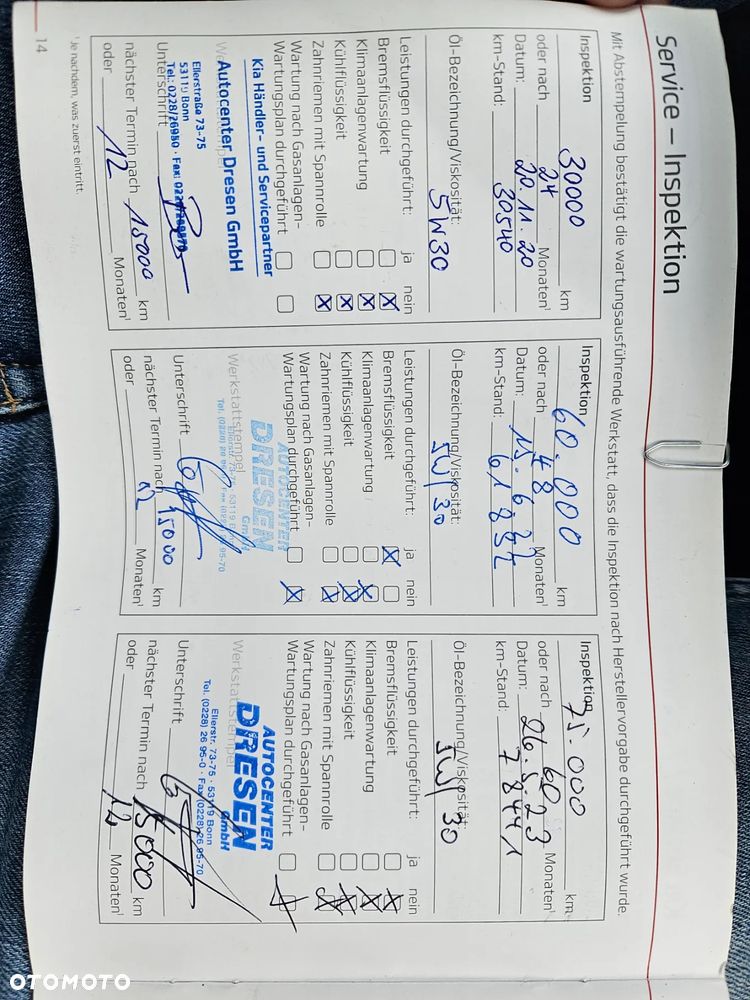 Service – Inspektion
Mit Abstempelung bestätigt die wartungsausführende Werkstatt, dass die Inspektion nach Herstellervorgabe durchgeführt wurde.
Inspektion 30000 km
oder nach 24 Monaten¹
Datum: 20.11.20
km-Stand: 30540
Öl-Bezeichnung/Viskosität:
5W30
Leistungen durchgeführt: ja nein
Bremsflüssigkeit
Klimaanlagenwartung
Kühlflüssigkeit
Zahnriemen mit Spannrolle
Wartung nach Gasanlagen-
Wartungsplan durchgeführt
Kia Händler- und Servicepartner
Autocenter Dresen GmbH
Ellerstraße 73-75
53119 Bonn
Tel.: 0228/26950 · Fax:
Unterschrift
nächster Termin nach 15000 km
oder 12 Monaten¹
Inspektion 60.000 km
oder nach 48 Monaten¹
Datum: 15.6.22
km-Stand: 61852
Öl-Bezeichnung/Viskosität:
5W30
Leistungen durchgeführt: ja nein
Bremsflüssigkeit
Klimaanlagenwartung
Kühlflüssigkeit
Zahnriemen mit Spannrolle
Wartung nach Gasanlagen-
Wartungsplan durchgeführt
AUTOCENTER
DRESEN
GmbH
Werkstattstempel
Unterschrift
nächster Termin nach 15000 km
oder 12 Monaten¹
Inspektion 75.000 km
oder nach 60 Monaten¹
Datum: 26.5.23
km-Stand: 78441
Öl-Bezeichnung/Viskosität:
5W30
Leistungen durchgeführt: ja nein
Bremsflüssigkeit
Klimaanlagenwartung
Kühlflüssigkeit
Zahnriemen mit Spannrolle
Wartung nach Gasanlagen-
Wartungsplan durchgeführt
AUTOCENTER
DRESEN
GmbH
Werkstattstempel
Ellerstr. 73-75 · 53119 Bonn
Tel. (0228) 26 95-0 · Fax (0228) 26 95-70
Unterschrift
nächster Termin nach 15000 km
oder 12 Monaten¹
¹ Je nachdem, was zuerst eintritt.
14
OTOMOTO